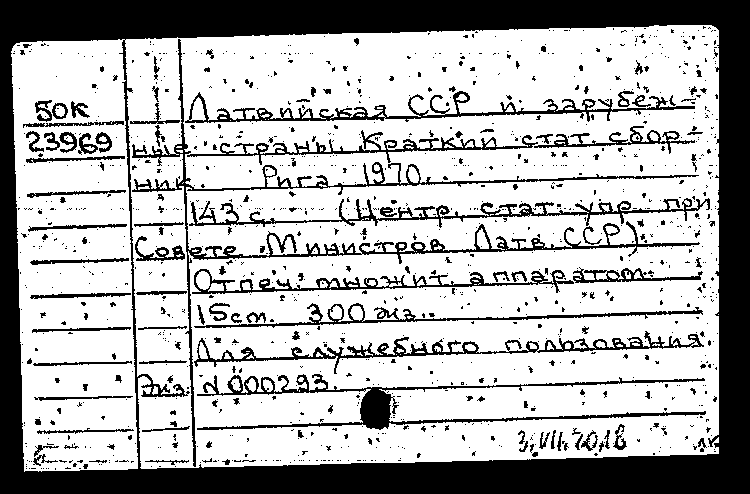 50К Латвийская ССР и зарубеж-
23969 ные страны. Краткий стат. сбор-
ник. Рига, 1970.
143 с. (Центр. стат. упр. при
Совете Министров Латв. ССР).
Отпеч. множит. аппаратом.
15 ст. 300 экз.
Для служебного пользования.
Экз. N000293.